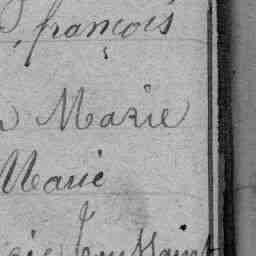 françois
Marie
Marie
Toussaint